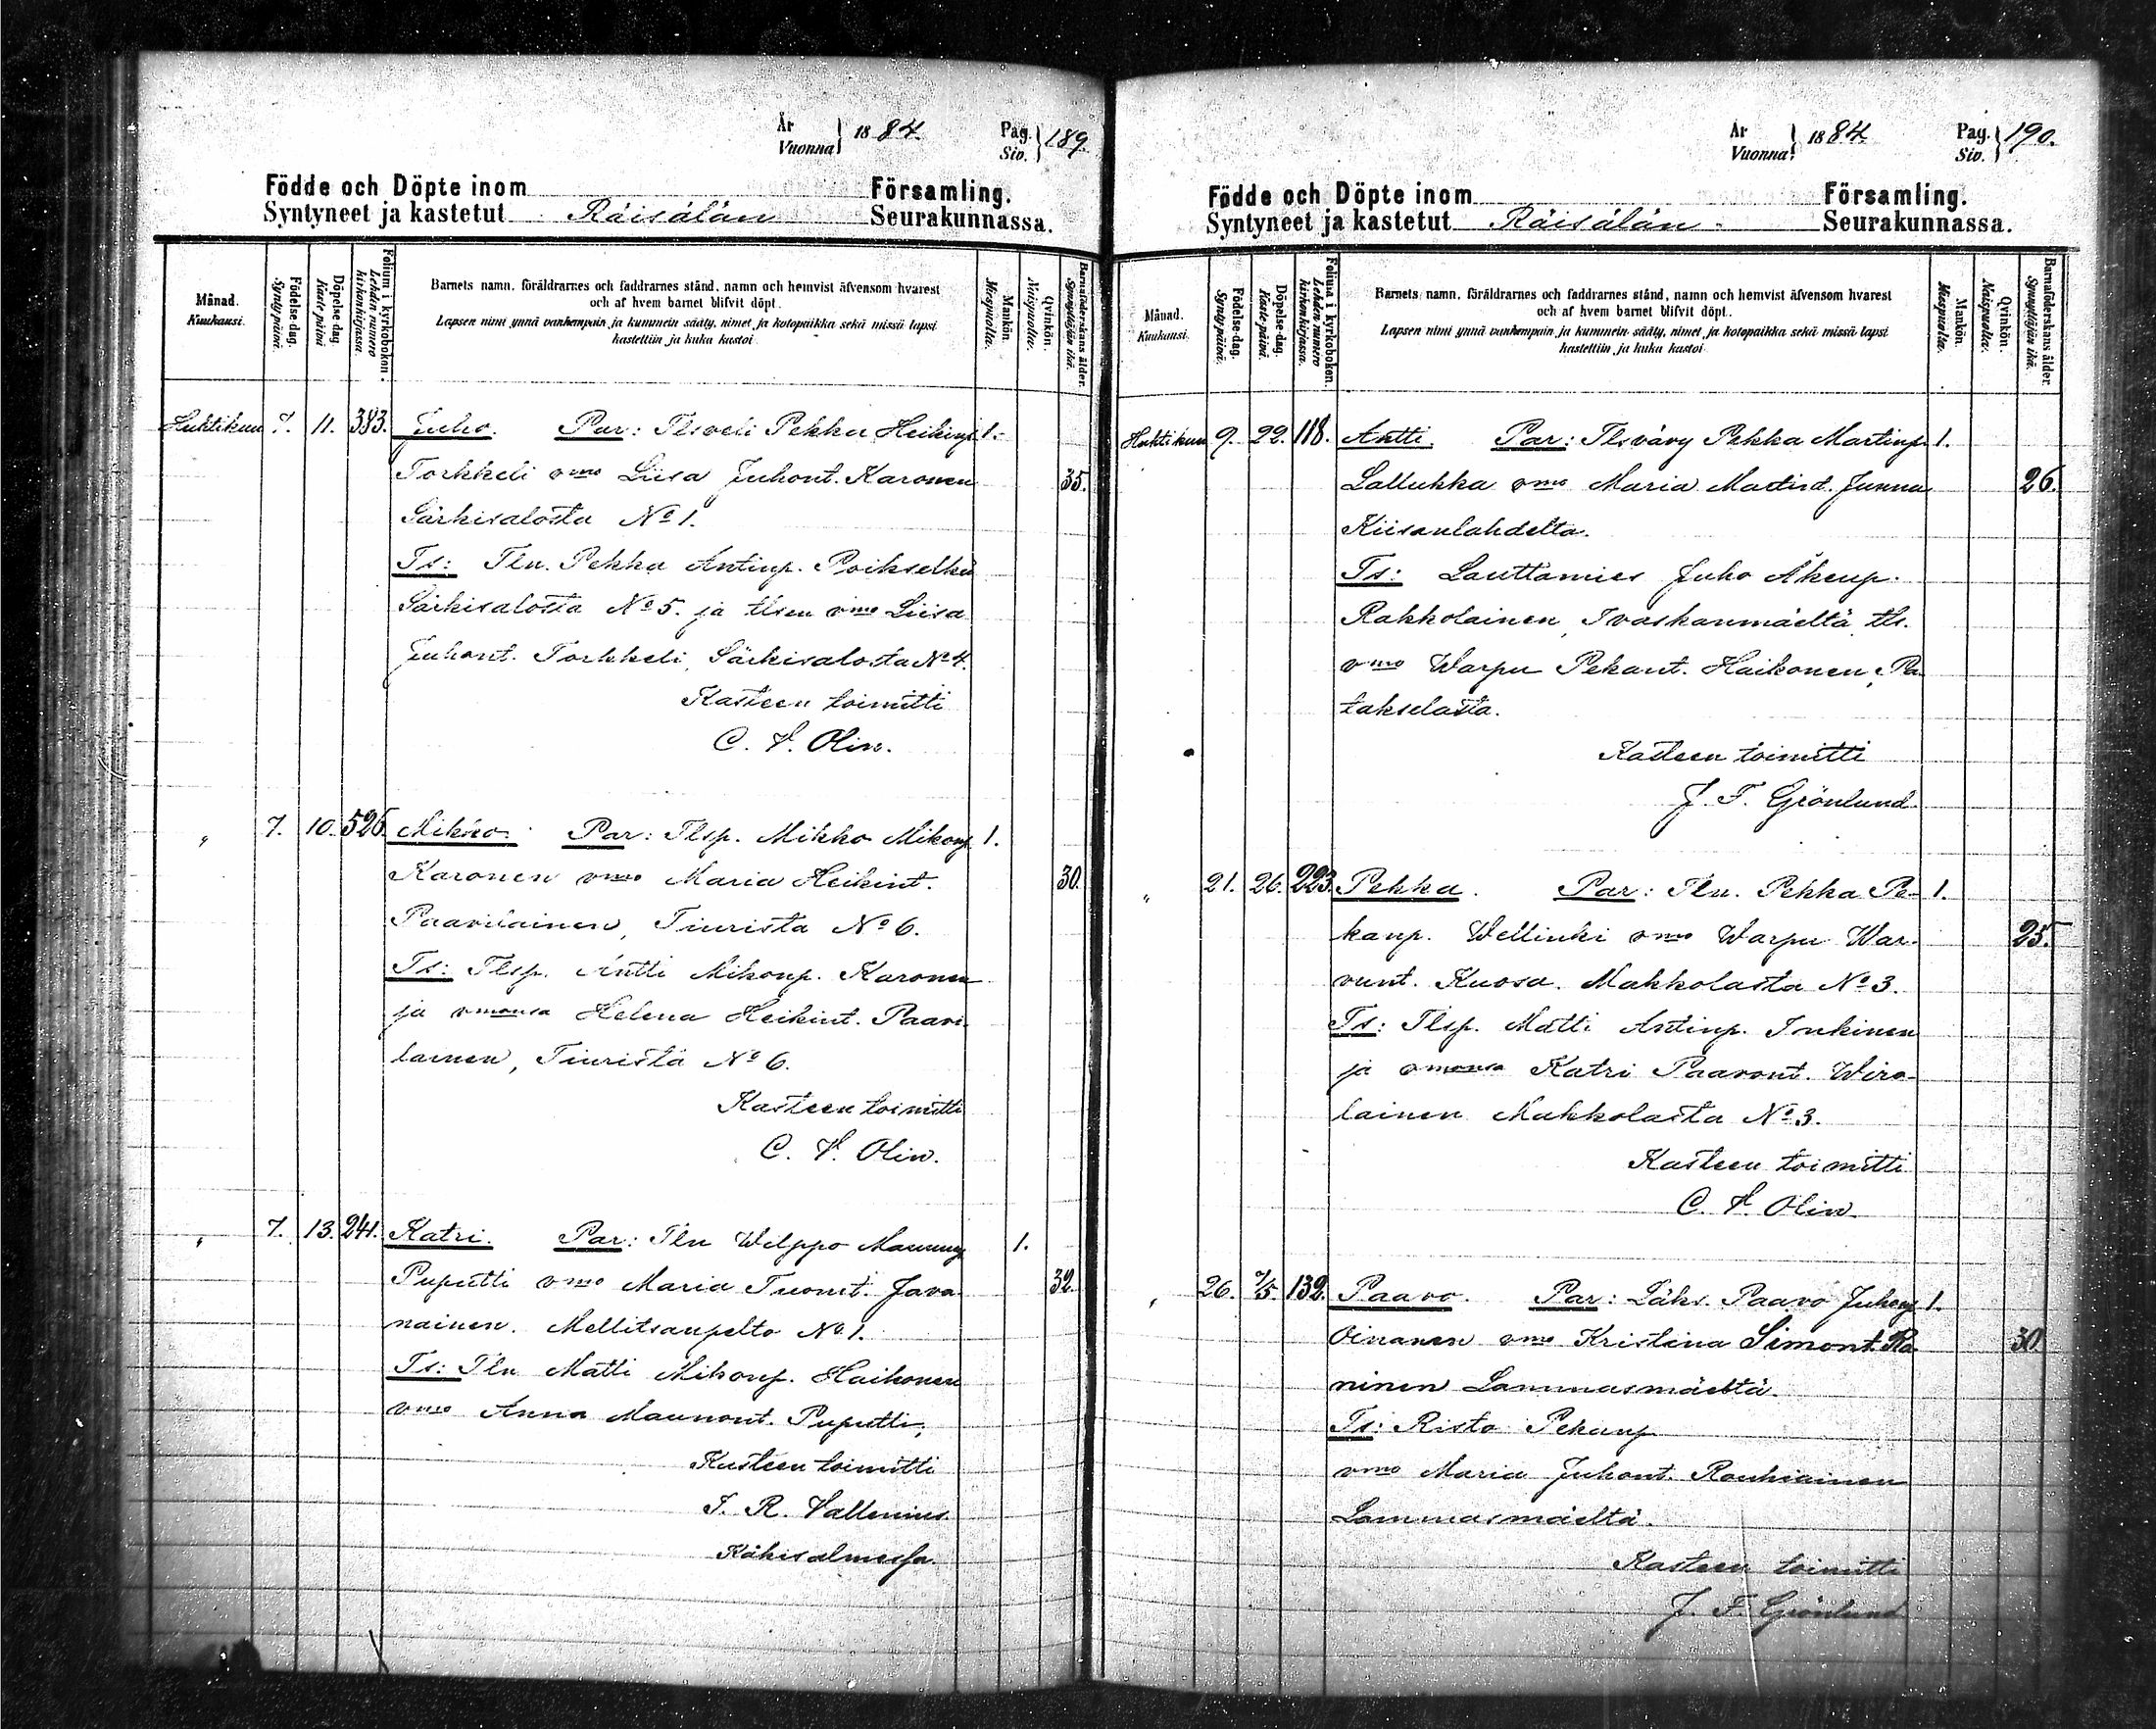 År
Vuonna } 1884.
Pag.
Siv. } 189.
Födde och Döpte inom Församling.
Syntyneet ja kastetut Räisälän Seurakunnassa.
Månad.
Kuukausi.
Födelse-dag.
Synty-päivä.
Döpelse-dag.
Kaste-päivä
Folium i kyrkoboken.
Lehden numero
kirkonkirjassa.
Barnets namn, föräldrarnes och faddrarnes stånd, namn och hemvist äfvensom hvarest
och af hvem barnet blifvit döpt.
Lapsen nimi ynnä vanhempain ja kummein sääty, nimet ja kotopaikka sekä missä lapsi
kastettiin ja kuka kastoi
Mankön.
Miespuolia.
Qvinkön.
Naispuolia.
Barnaföderskans ålder.
Synnyttäjän ikä.
Huhtikuu 7. 11. 383. Juho. Par: Tlsveli Pekka Heikinp. 1.
Torkkeli vmo Liisa Juhont. Karonen 35.
Särkisalosta No 1.
Ts: Tln. Pekka Antinp. Poikselkä
Särkisalosta No 5. ja tlsen vmo Liisa
Juhont. Torkkeli, Särkisalosta No 4.
Kasteen toimitti
C. V. Olin.
" 7. 10. 526. Mikko. Par: Tlsp. Mikko Mikonp. 1.
Karonen vmo Maria Heikint. 30.
Paavilainen, Tiurista No 6.
Ts: Tlsp. Antti Mikonp. Karonen
ja vmonsa Helena Heikint. Paavi-
lainen, Tiurista No 6.
Kasteen toimitti
C. V. Olin.
" 7. 13. 241. Katri. Par: Tln Wilppo Maununp. 1.
Puputti vmo Maria Tuomt. Java- 32.
nainen. Mellitsanpelto No 1.
Ts: Tln Matti Mikonp. Haikonen
vmo Anna Maunont. Puputti,
Kasteen toimitti
J. R. Vallenius
Käkisalmessa.
År
Vuonna } 1884.
Pag.
Siv. } 190.
Födde och Döpte inom Församling.
Syntyneet ja kastetut Räisälän Seurakunnassa.
Månad.
Kuukausi
Födelse-dag.
Synty-päivä.
Döpelse-dag.
Kaste-päivä.
Folium i kyrkoboken.
Lehden numero
kirkonkirjassa.
Barnets namn, föräldrarnes och faddrarnes stånd, namn och hemvist äfvensom hvarest
och af hvem barnet blifvit döpt.
Lapsen nimi ynnä vanhempain ja kummein sääty, nimet ja kotopaikka sekä missä lapsi
kastettiin ja kuka kastoi
Mankön.
Miespuolia.
Qvinkön.
Naispuolia.
Barnaföderskans ålder.
Synnyttäjän ikä.
Huhtikuu 9. 22. 118. Antti. Par: Tlsvävy Pekka Martinp. 1.
Lallukka vmo Maria Martint. Junna 26.
Kiisanlahdelta.
Ts: Lauttamies Juho Åkenp.
Rakkolainen, Ivaskanmäeltä, tls.
vmo Warpu Pekant. Haikonen, Pa-
takselasta.
Kasteen toimitti
J. F. Grönlund
" 21. 26. 223. Pekka. Par: Tln. Pekka Pe- 1.
kanp. Wellinki vmo Warpu War- 25.
vunt. Kuosa. Makkolasta No 3.
Ts: Tlsp. Matti Antinp. Inkinen
ja vmonsa Katri Paavont. Wiro-
lainen Makkolasta No 3.
Kasteen toimitti
C. V. Olin.
" 26. 7/5. 132. Paavo. Par: Läks. Paavo Juhonp. 1.
Oinanen vmo Kristina Simont. Ro- 30
ninen Lammasmäeltä.
Ts: Risto Pekanp
vmo Maria Juhont. Rouhiainen
Lammasmäeltä.
Kasteen toimitti
J. F. Grönlund